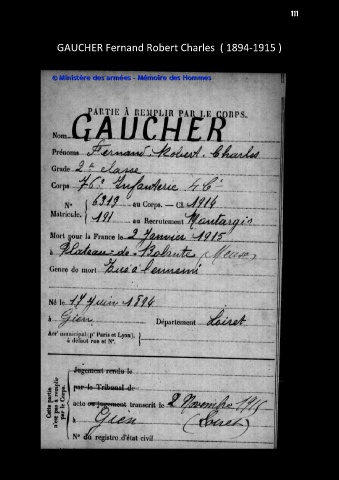 111
GAUCHER Fernand Robert Charles ( 1894-1915 )
© Ministère des armées - Mémoire des Hommes
PARTIE À REMPLIR PAR LE CORPS.
Nom GAUCHER
Prénoms Fernand Robert Charles
Grade 2e classe
Corps 76e Infanterie 4e Cie
N° 6319 au Corps. — Cl 1914
Matricule. 191 au Recrutement Montargis
Mort pour la France le 2 Janvier 1915
à Plateau de Bolante (Meuse)
Genre de mort Tué à l'ennemi
Né le 17 Juin 1894
à Gien Département Loiret
Arrt municipal (pr Paris et Lyon), à défaut rue et N°.
Cette partie n'est pas à remplir par le Corps.
Jugement rendu le
par le Tribunal de
acte ou jugement transcrit le 2 Novembre 1915
à Gien (Loiret)
N° du registre d'état civil